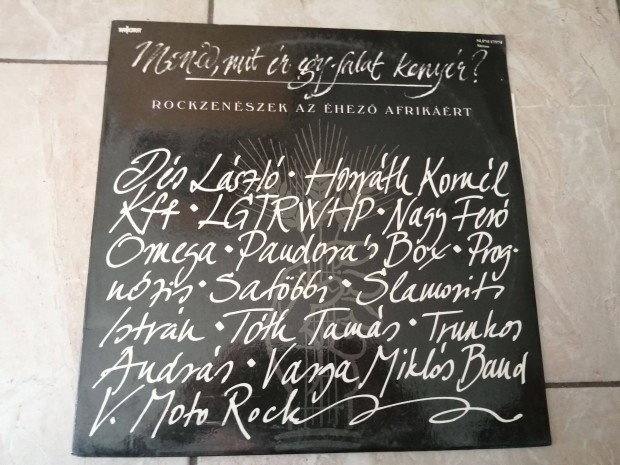 SLPM 37978
Stereo
Mondd, mit ér egy falat kenyér?
ROCKZENÉSZEK AZ ÉHEZŐ AFRIKÁÉRT
Dés László • Horváth Kornél
Kft • LGTRWHP • Nagy Feró
Omega • Pandora's Box • Prog-
nózis • Satöbbi • Slamovits
István • Tóth Tamás • Trunkos
András • Varga Miklós Band
V. Moto Rock